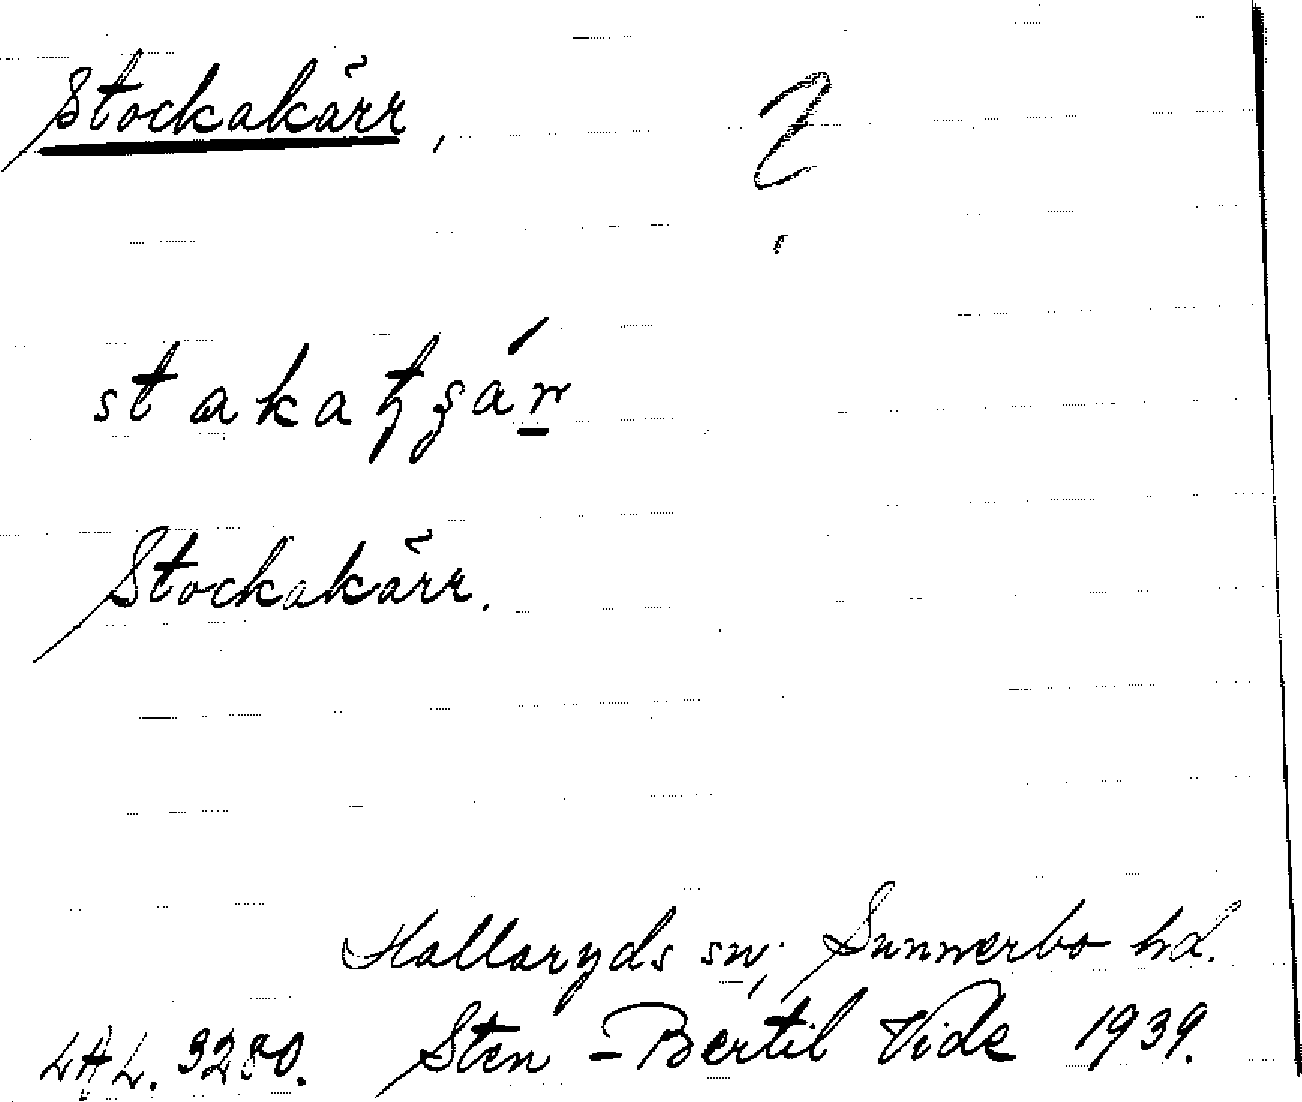 Stockakärr, ?
stakatʒár
Stockakärr.
Hallaryds sn; Sunnerbo hd.
LAL. 3280. Sten-Bertil Vide 1939.